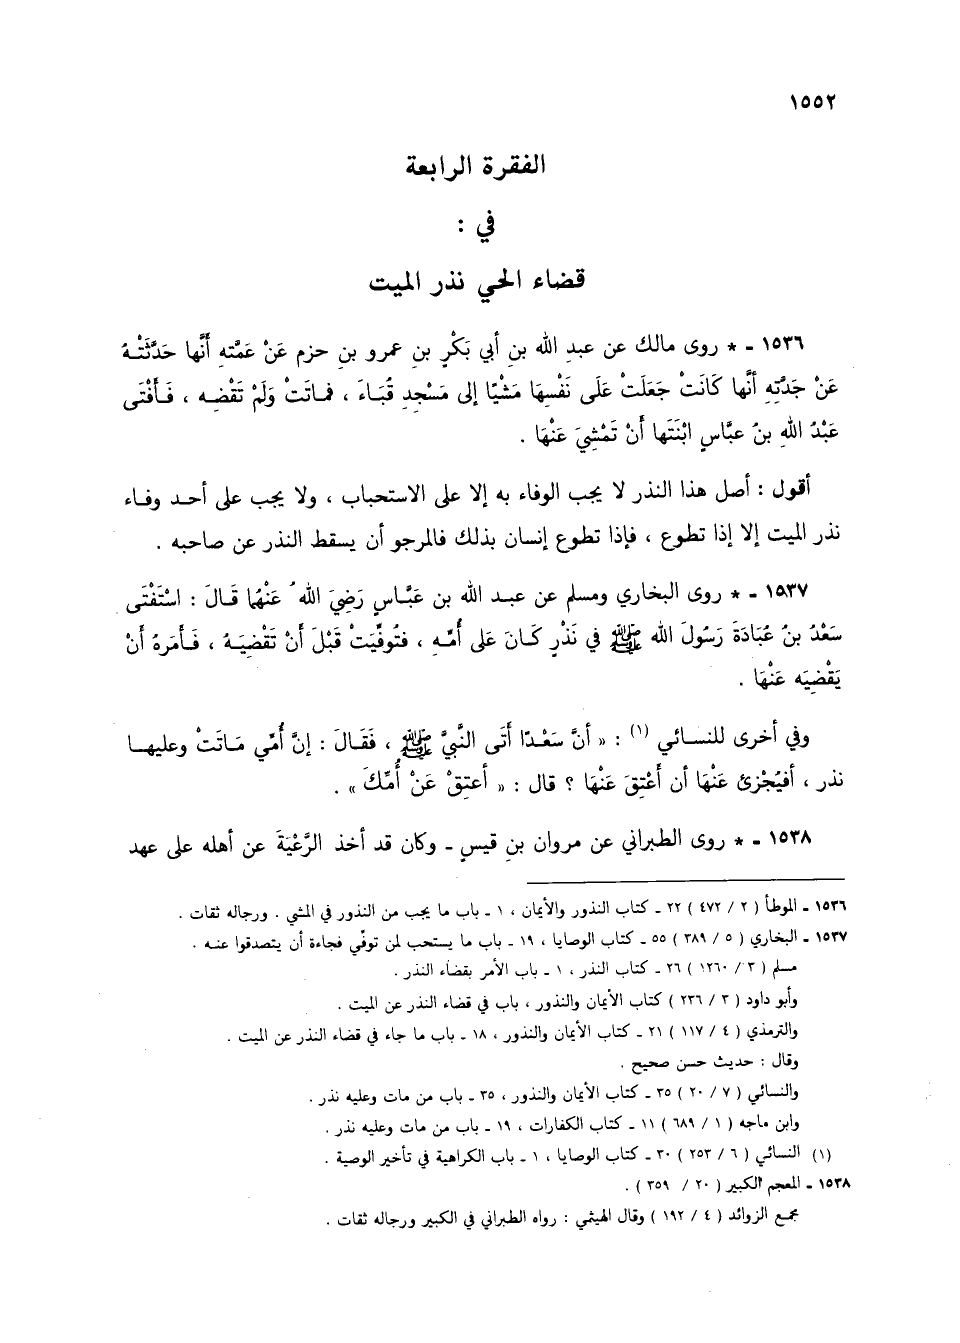 ١٥٥٢
الفقرة الرابعة
في :
قضاء الحي نذر الميت
١٥٣٦ - * روى مالك عن عبدِ الله بنِ أبي بَكْرٍ بنِ عمرو بنِ حزم عَنْ عَمَّتهِ أنَّها حَدَّثَتْـهُ
عَنْ جَدَّتِهِ أنَّها كَانَتْ جَعَلَتْ عَلَى نَفْسِهَا مَشْيًا إلى مَسْجِدِ قُبَاءَ ، فماتَتْ وَلَمْ تَقْضِه ، فَـأَفْتَى
عَبْدُ اللهِ بنُ عبَّاسٍ ابْنَتَها أَنْ تَمْشِيَ عَنْهَا .
أقول : أصل هذا النذر لا يجب الوفاء به إلا على الاستحباب ، ولا يجب على أحد وفـاء
نذر الميت إلا إذا تطوع ، فإذا تطوع إنسان بذلك فالمرجو أن يسقط النذر عن صاحبه .
١٥٣٧ - * روى البخاري ومسلم عن عبـد الله بن عَبَّـاسٍ رَضِيَ اللهُ عَنْهُما قَـالَ : اسْتَفْتَى
سَعْدُ بنُ عُبَادَةَ رَسُولَ الله ﷺ في نَذْرٍ كَـانَ عَلى أُمِّـهِ ، فتُوفِّيَتْ قَبْلَ أنْ تَقْضِيَـهُ ، فَـأمَرهُ أنْ
يَقْضِيَه عَنْهَا .
وفي أخرى للنسـائي (١) : « أنَّ سَعْـدًا أتَى النَّبِيَّ ﷺ ، فَقَالَ : إنَّ أُمِّي مَـاتَتْ وعليهـا
نذر ، أفيُجْزئ عَنْهَا أن أَعْتِقَ عَنْهَا ؟ قال : « أعتِقْ عَنْ أُمِّكَ » .
١٥٣٨ - * روى الطبراني عن مروان بنِ قيسٍ - وكان قد أخذ الرَّعْيَةَ عن أهله على عهد
١٥٣٦ - الموطأ ( ٢ / ٤٧٢ ) ٢٢ - كتاب النذور والأيمان ، ١ - باب ما يجب من النذور في المشي . ورجاله ثقات .
١٥٣٧ - البخاري ( ٥ / ٣٨٩ ) ٥٥ - كتاب الوصايا ، ١٩ - باب ما يستحب لمن توفّي فجاءة أن يتصدقوا عنـه .
مسلم ( ٣ / ١٢٦٠ ) ٢٦ - كتاب النذر ، ١ - باب الأمر بقضاء النذر .
وأبو داود ( ٣ / ٢٣٦ ) كتاب الأيمان والنذور ، باب في قضاء النذر عن الميت .
والترمذي ( ٤ / ١١٧ ) ٢١ - كتاب الأيمان والنذور ، ١٨ - باب ما جاء في قضاء النذر عن الميت .
وقال : حديث حسن صحيح .
والنسائي ( ٧ / ٢٠ ) ٣٥ - كتاب الأيمان والنذور ، ٣٥ - باب من مات وعليه نذر .
وابن ماجه ( ١ / ٦٨٩ ) ١١ - كتاب الكفارات ، ١٩ - باب من مات وعليه نذر .
(١) النسائي ( ٦ / ٢٥٣ ) ٣٠ - كتاب الوصايا ، ١ - باب الكراهية في تأخير الوصية .
١٥٣٨ - المعجم الكبير ( ٢٠ / ٣٥٩ ) .
مجمع الزوائد ( ٤ / ١٩٢ ) وقال الهيثمي : رواه الطبراني في الكبير ورجاله ثقات .